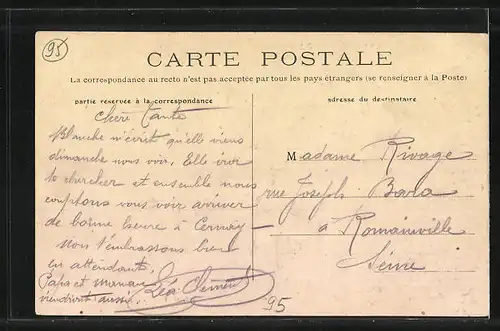 95
CARTE POSTALE
La correspondance au recto n'est pas acceptée par tous les pays étrangers (se renseigner à la Poste)
partie réservée à la correspondance
adresse du destinataire
Chère Tante
Blanche m'écrit qu'elle viens
dimanche nous voir. Elle ira
te chercher et ensemble nous
comptons vous voir arriver
de bonne heure à Cernay —
Nous t'embrassons bien
en attendant.
Papa et maman
viendront aussi.
Léa Clément
Madame Rivage
rue Joseph Bara
à Romainville
Seine
95